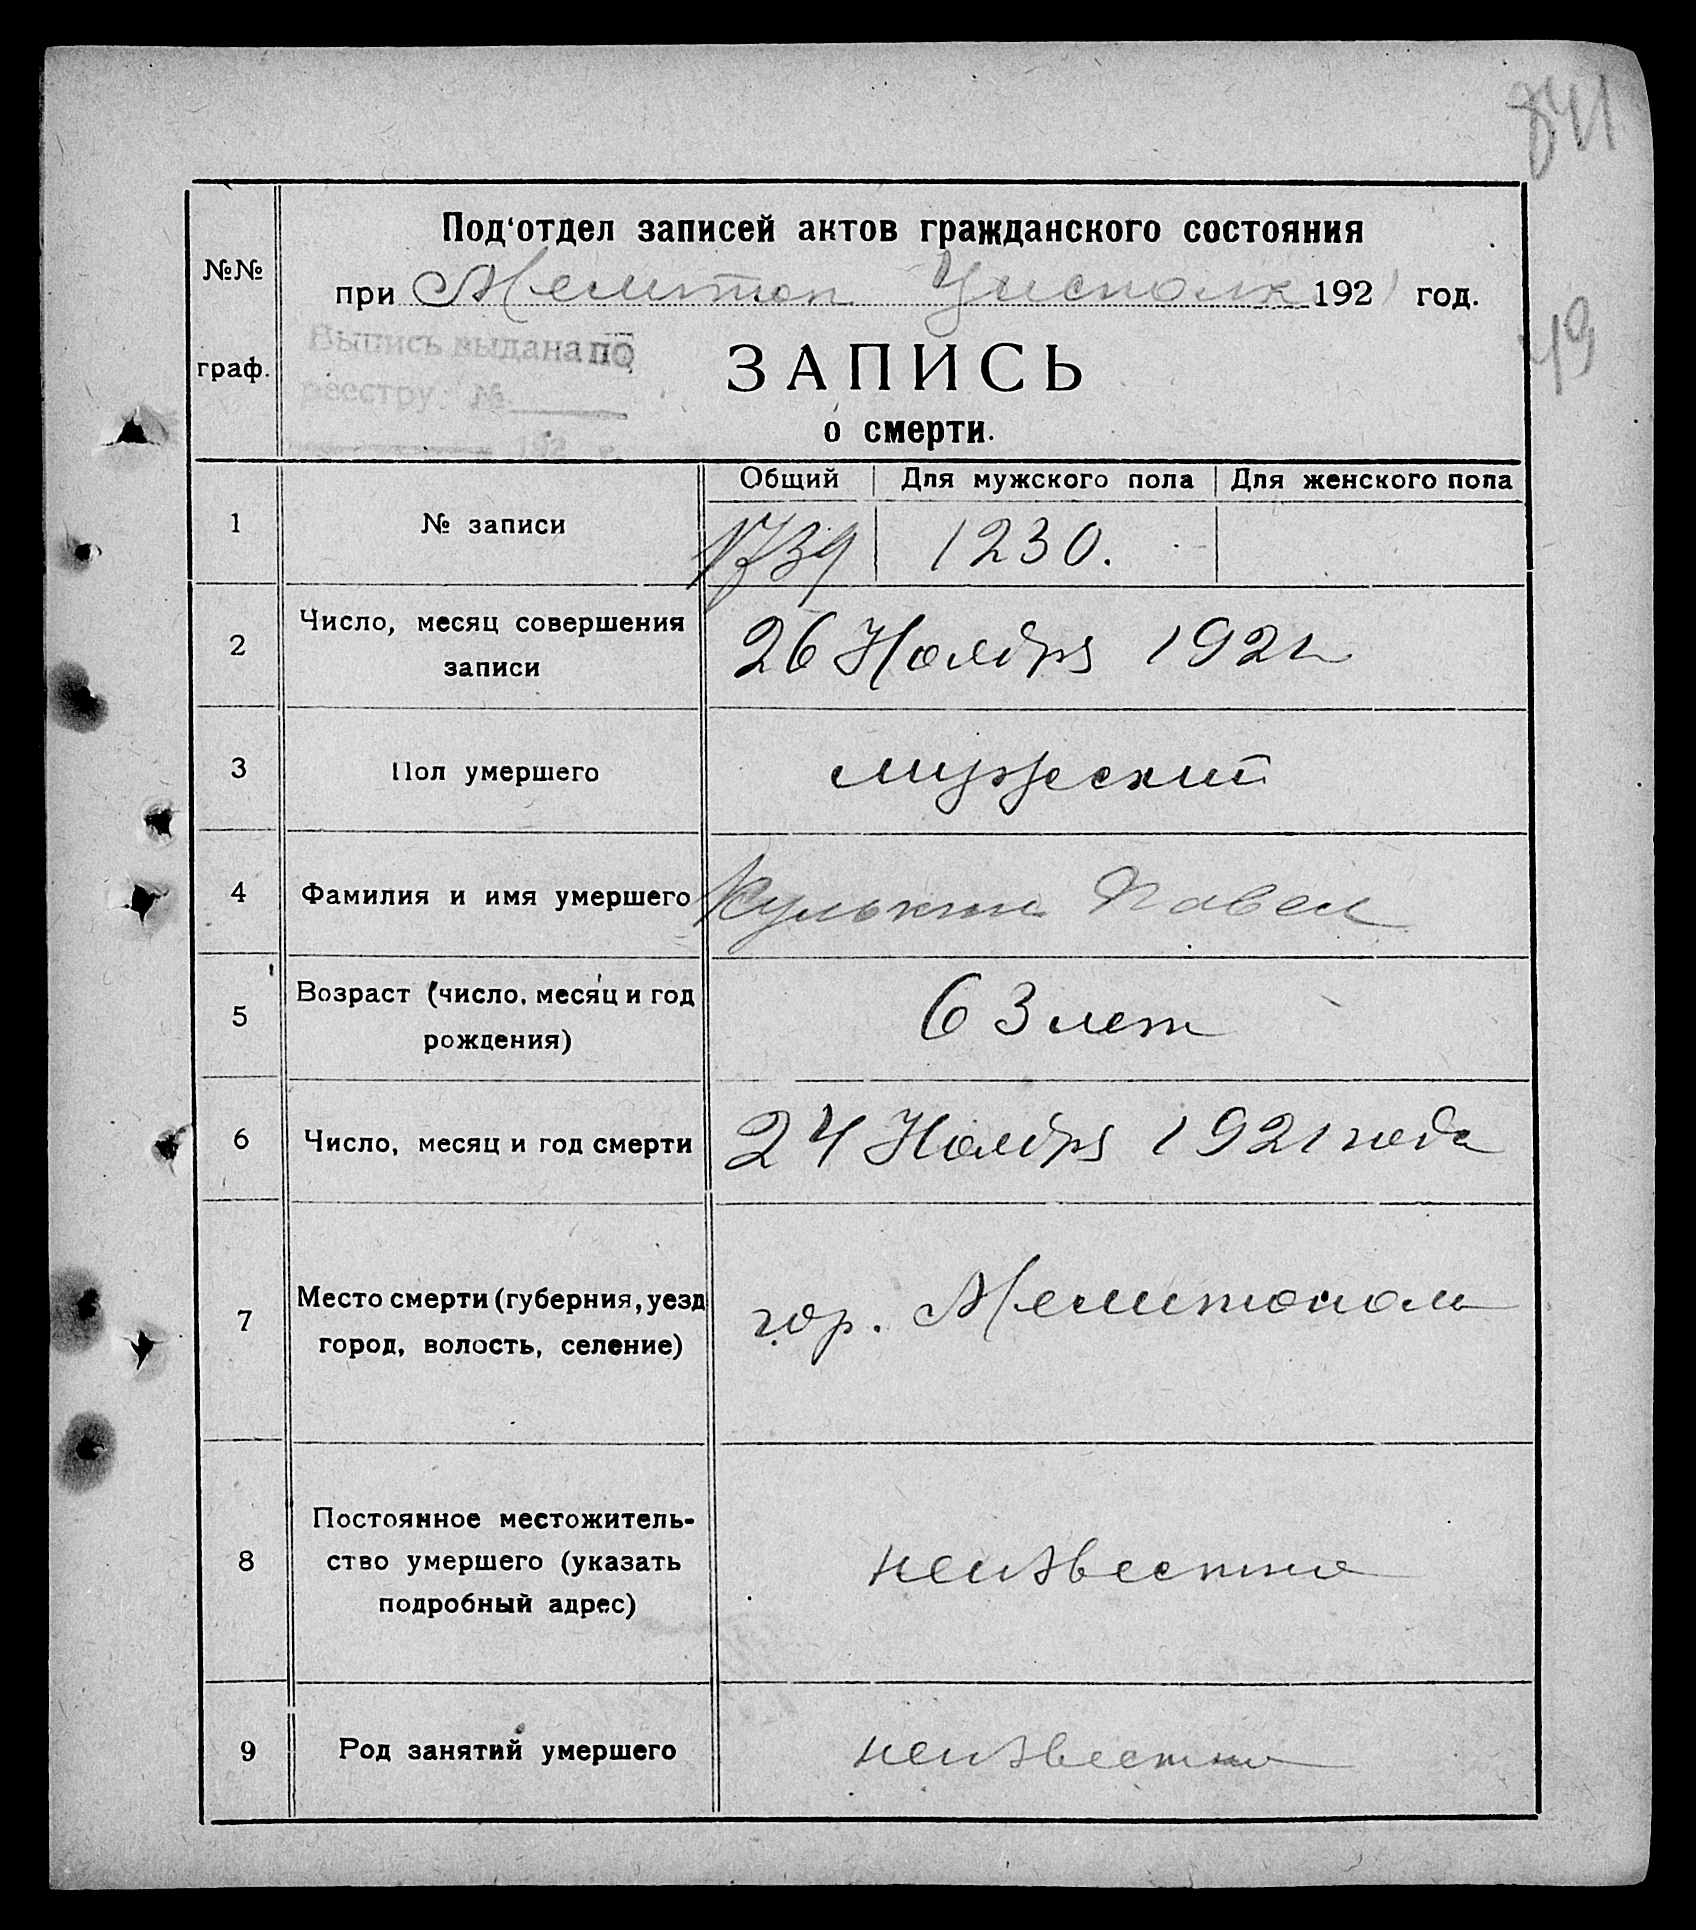 841
Под‘отдел записей актов гражданского состояния
№№
при Мелитоп Уисполк 1921 год.
49
Выпись выдана по
ЗАПИСЬ
граф.
реестру №
о смерти.
192 г.
Общий Для мужского пола Для женского пола
1 № записи 1739 1230.
Число, месяц совершения
2 26 Ноября 1921 г
записи
3 Пол умершего мужеский
4 Фамилия и имя умершего Кулькин Павел
Возраст (число, месяц и год
5 63 лет
рождения)
6 Число, месяц и год смерти 24 Ноября 1921 года
Место смерти (губерния, уезд
7 гор. Мелитополь
город, волость, селение)
Постоянное местожитель-
8 ство умершего (указать неизвестно
подробный адрес)
9 Род занятий умершего неизвестно